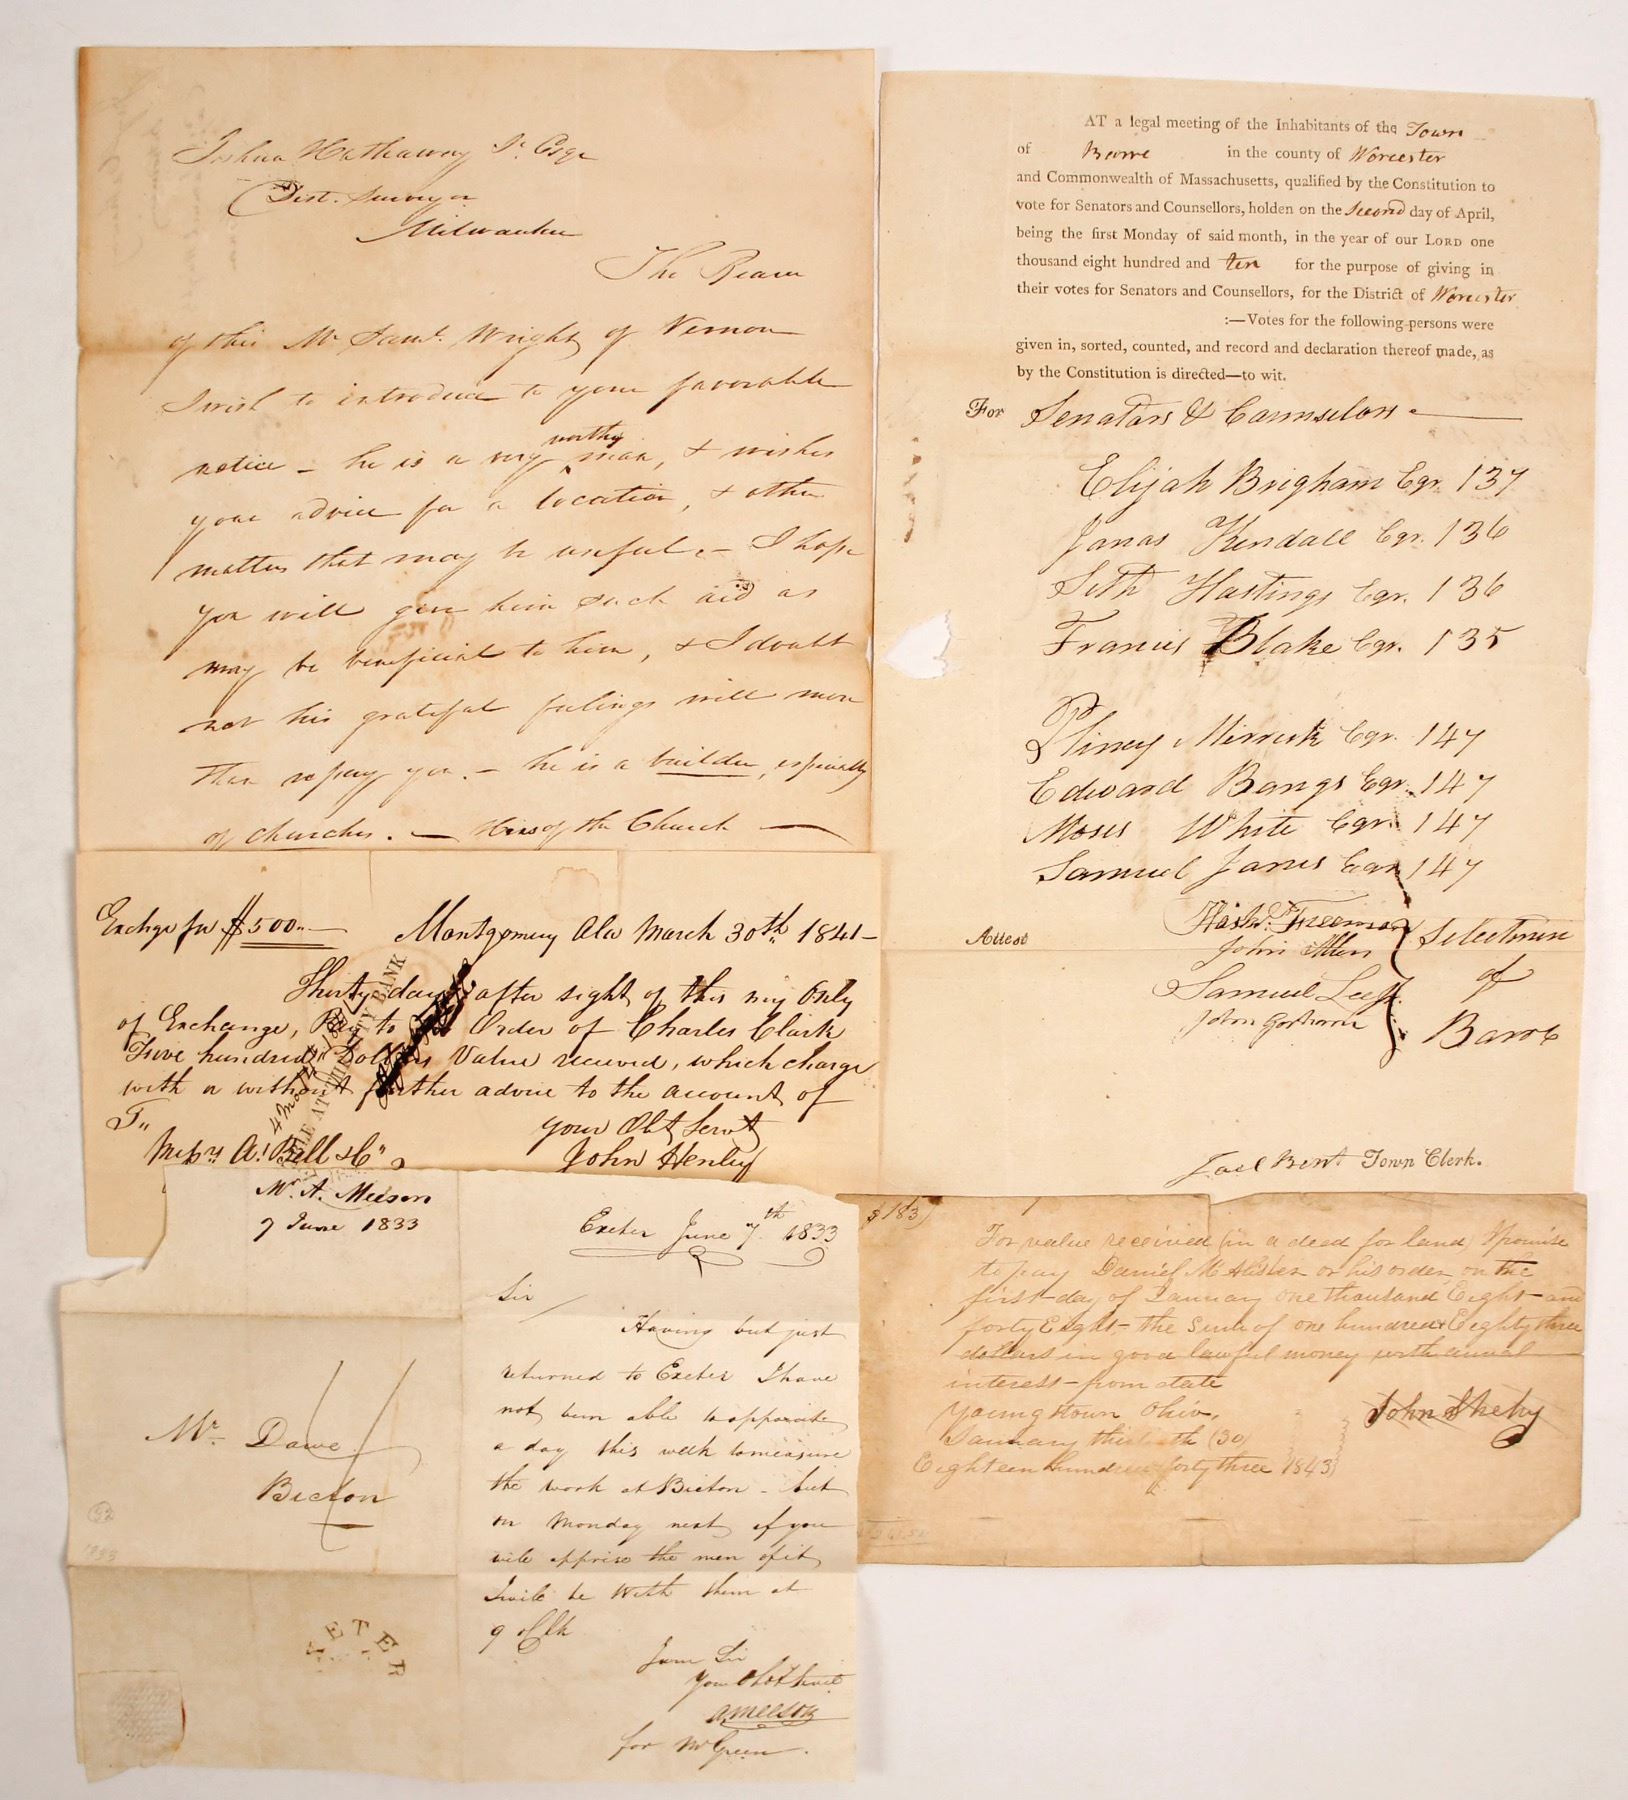 Joshua Hathaway Jr. Esqr
Dist. Surveyor
Milwaukee
The Bearer
of this Mr Saml. Wright of Vernon
I wish to introduce to your favorable
notice - he is a very worthy man, & wishes
your advice for a location, & other
matters that may be useful. - I hope
you will give him such aid as
may be beneficial to him, & I doubt
not his grateful feelings will more
than repay you. - he is a builder, especially
of churches. - of the Church
AT a legal meeting of the Inhabitants of the Town
of Barre in the county of Worcester
and Commonwealth of Massachusetts, qualified by the Constitution to
vote for Senators and Counsellors, holden on the Second day of April,
being the first Monday of said month, in the year of our LORD one
thousand eight hundred and ten for the purpose of giving in
their votes for Senators and Counsellors, for the District of Worcester
:—Votes for the following persons were
given in, sorted, counted, and record and declaration thereof made, as
by the Constitution is directed—to wit.
For Senators & Counselors
Elijah Brigham Eqr. 137
Jonas Kendall Eqr. 136
Seth Hastings Eqr. 136
Francis Blake Eqr. 135
Pliney Merrick Eqr. 147
Edward Bangs Eqr. 147
Moses White Eqr. 147
Samuel Janes Eqr. 147
Attest
Freeman
John Allen
Samuel Lee
John Gorham
Selectmen
of
Barre
Joel Bent Town Clerk.
Exchge for $500..
Montgomery Ala March 30th 1841
Thirty days after sight of this my Only
of Exchange, Pay to the Order of Charles Clark
Five hundred Dollars Value received, which charge
with or without further advice to the account of
To
your Obt Servt
Messrs A. Bell & Co
John Henley
CITY BANK
Mr. A. Meeson
7 June 1833
Mr. Dawe
Bicton
92
1833
EXETER
Exeter June 7th 1833
Sir
Having but just
returned to Exeter I have
not been able to appoint
a day this week to measure
the work at Bicton - but
on Monday next if you
will apprise the men of it
I will be with them at
9 oClk
I am Sir
Your Obt Servt
A Meeson
for Mr Green.
$183)
For value received (in a deed for land) I promise
to pay Daniel McAlister or his order on the
first day of January one thousand Eight and
forty Eight - the Sum of one hundred & Eighty three
dollars in good lawful money with anual
interest - from date
Youngstown Ohio,
January thirtieth (30)
Eighteen hundred forty three 1843)
John Shehy